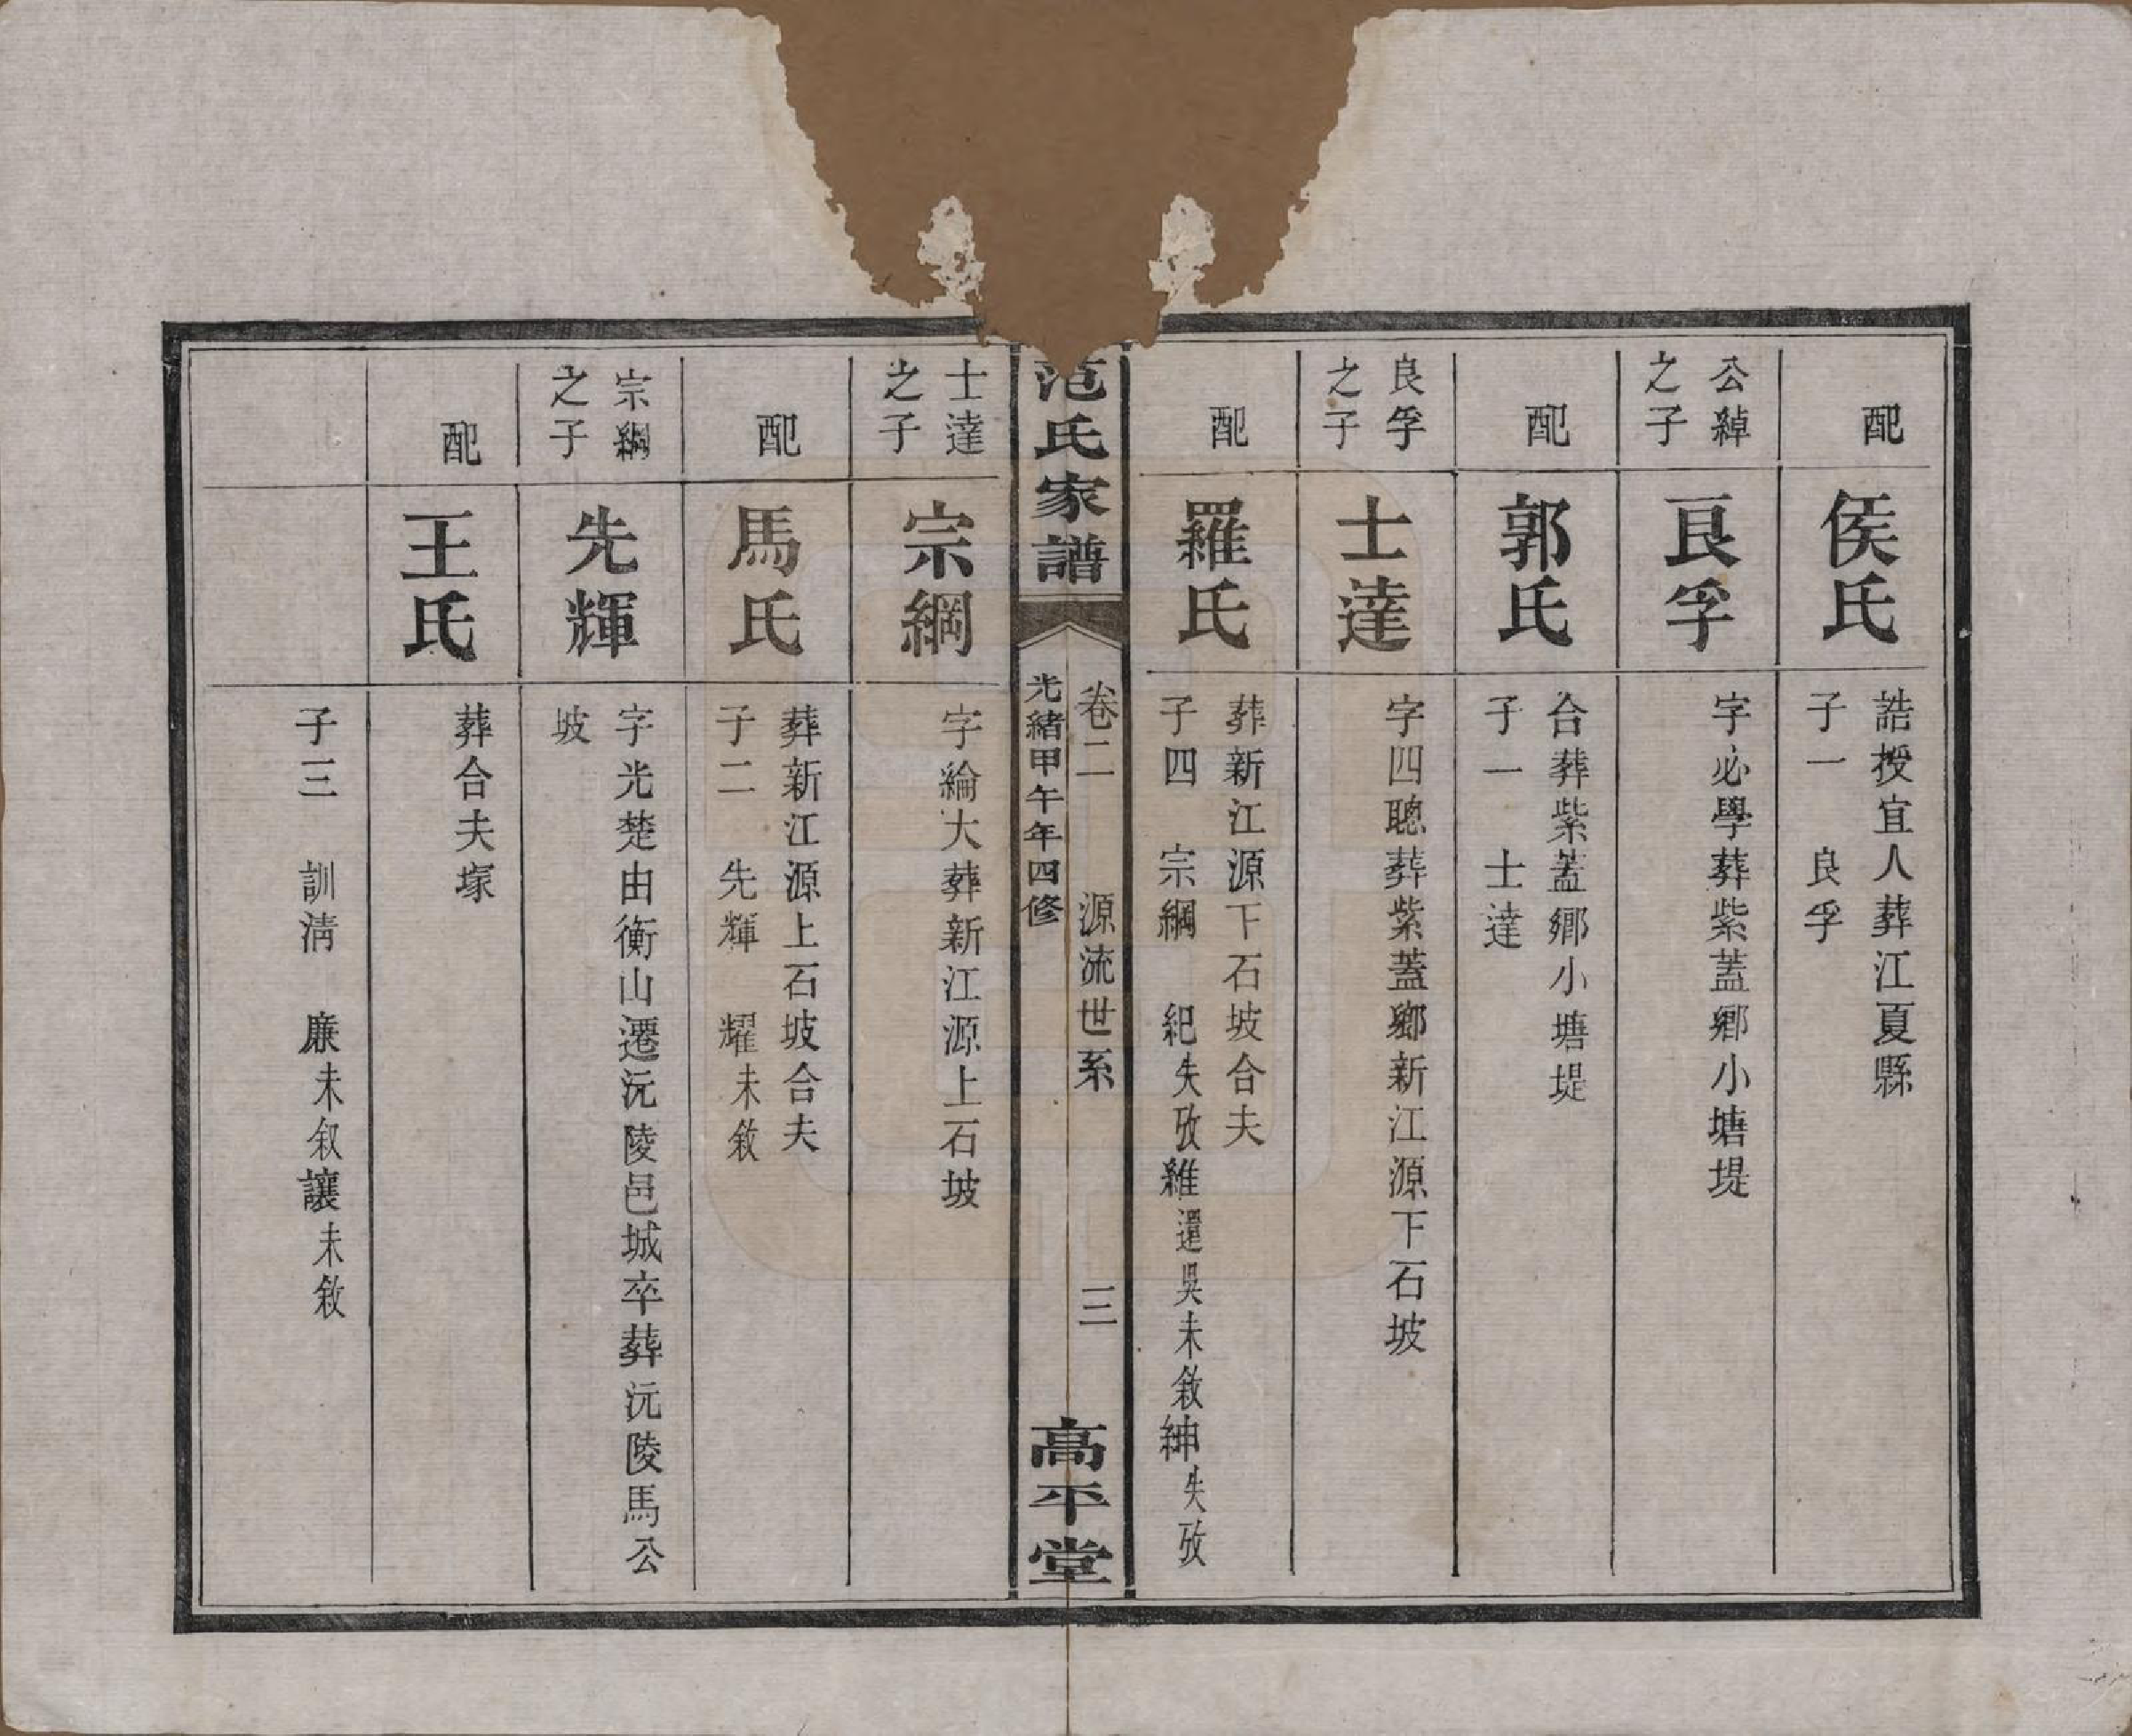 配
侯氏
誥授宜人葬江夏縣
子一　良孚
公綽
之子
良孚
字必學葬紫蓋鄉小塘堤
配
郭氏
合葬紫蓋鄉小塘堤
子一　士達
良孚
之子
士達
字四聰葬紫蓋鄉新江源下石坡
配
羅氏
葬新江源下石坡合夫
子四　宗綱　紀失攷維還吳未敘紳失攷
范氏家譜
卷二　源流世系　三
光緒甲午年四修
高平堂
士達
之子
宗綱
字綸大葬新江源上石坡
配
馬氏
葬新江源上石坡合夫
子二　先輝　耀未敘
宗綱
之子
先輝
字光楚由衡山遷沅陵邑城卒葬沅陵馬公
坡
配
王氏
葬合夫塚
子三　訓清　廉未叙讓未敘